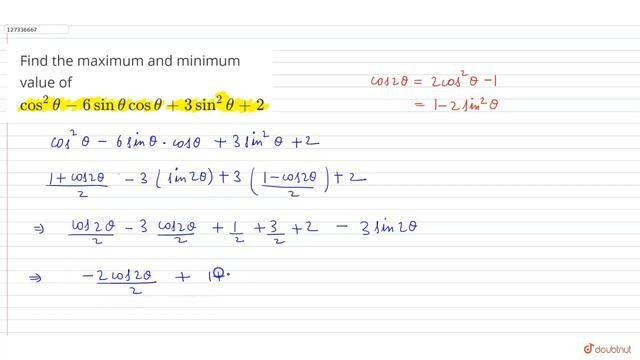 127336667
Find the maximum and minimum
value of
cos² θ − 6 sin θ cos θ + 3 sin² θ + 2
cos2θ = 2cos²θ −1
= 1−2sin²θ
cos²θ − 6 sinθ·cosθ + 3 sin²θ + 2
(1 + cos2θ)/2 − 3 (sin2θ) + 3 ((1−cos2θ)/2) + 2
⇒ cos2θ/2 − 3 cos2θ/2 + 1/2 + 3/2 + 2 − 3 sin2θ
⇒ −2cos2θ/2 +
doubtnut